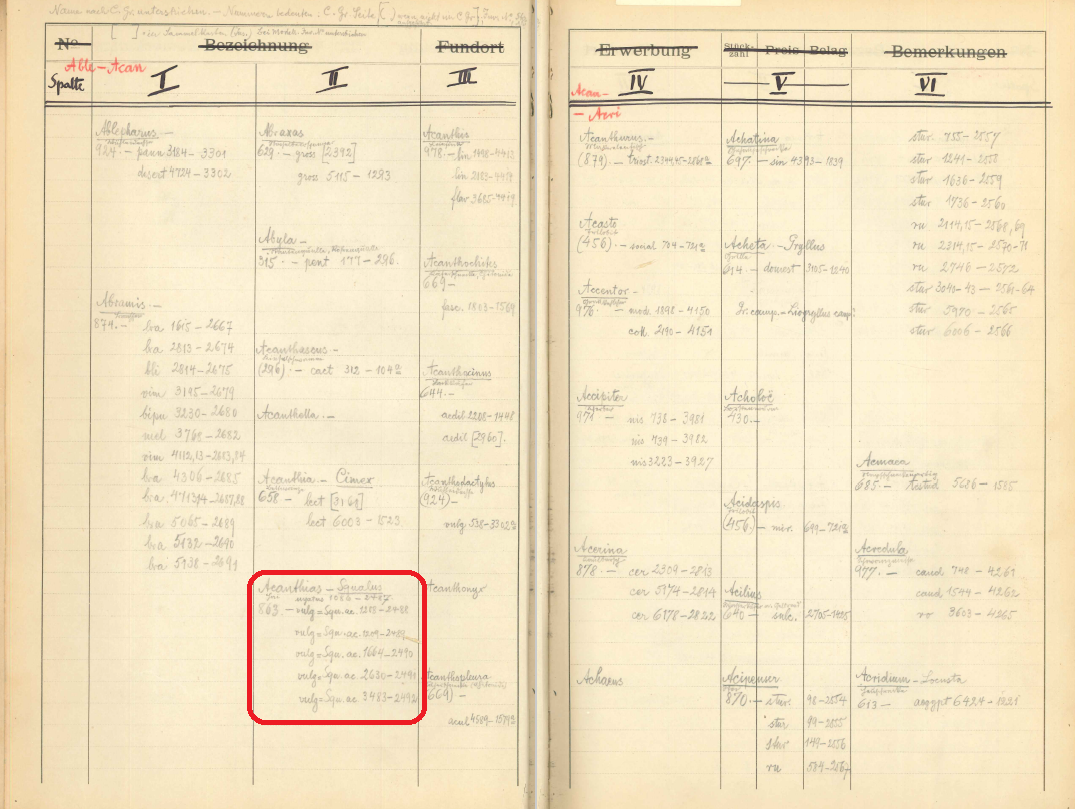 Name nach C. Gr. unterstrichen. — Nummern bedeuten: C. Gr. Seite,
No
Bezeichnung
Fundort
Able-Acan
Spalte
I
II
III
Ablepharus.—
924.— pann 3184 - 3301
desert 4724 - 3302
Abramis.—
874.—
bra 1615 - 2667
bra 2813 - 2674
bli 2814 - 2675
vim 3195 - 2679
bipu 3230 - 2680
mel 3768 - 2682
vim 4112,13 - 2683,84
bra 4306 - 2685
bra 4713,14 - 2687,88
bra 5065 - 2689
bra 5132 - 2690
bra 5138 - 2691
Abraxas
629.— gross [2392]
gross 5115 - 1293
Abyla —
315.— pent 177 - 296.
Acanthascus —
(296).— cact 312 - 104a
Acanthella.—
Acanthia — Cimex
658 — lect [3161]
lect 6003 - 1523
Acanthias — Squalus
863.— vulg=Squ. ac. 1218 - 2488
vulg=Squ. ac. 1209 - 2489
vulg=Squ. ac. 1664 - 2490
vulg=Squ. ac. 2630 - 2491
vulg=Squ. ac. 3483 - 2492
Acanthis
978.— lin 1498 - 4413
lin 2183 - 4414
flav 3685 - 4419
Acanthochites
669 —
fasc. 1803 - 1569
Acanthocinus
644.—
aedil 2288 - 1448
aedil [2960].
Acanthodactylus
(924) —
vulg 538 - 3302a
Acanthonyx
Acanthopleura
(669) —
acul 4589 - 1574a
Erwerbung
Stück-
zahl
Preis
Belag
Bemerkungen
Acan-
- Acri
IV
V
VI
Acanthurus.—
(879).— triost. 2344,45 - 2868a
Acaste
(456).— social 704 - 721a
Accentor —
976.— mod. 1898 - 4150
coll 2190 - 4151
Accipiter
971 —
nis 738 - 3981
nis 739 - 3982
nis 3223 - 3927
Acerina
878.— cer 2309 - 2813
cer 5174 - 2814
cer 6178 - 2822
Acharus
Achatina
697.— sin 4393 - 1839
Acheta — Gryllus
614.— domest 3105 - 1240
Gr. camp. - Liogryllus camp.
Acholoë
430.—
Acidaspis
(456) — mir. 699 - 721a
Acilius
640 — sulc. 2705 - 1425
Acipenser
870.— stur. 98 - 2554
stur 99 - 2555
stur 149 - 2556
ru 584 - 2567
stur 755 - 2557
stur 1241 - 2558
stur 1636 - 2559
stur 1736 - 2560
ru 2114,15 - 2568,69
ru 2314,15 - 2570-71
ru 2746 - 2572
stur 3040-43 - 2561-64
stur 5980 - 2565
stur 6006 - 2566
Acmaea
685.— testud 5686 - 1585
Acredula
977.— caud 748 - 4261
caud 1544 - 4262
ro 3603 - 4265
Acridium — Locusta
613 — aegypt 6424 - 1221